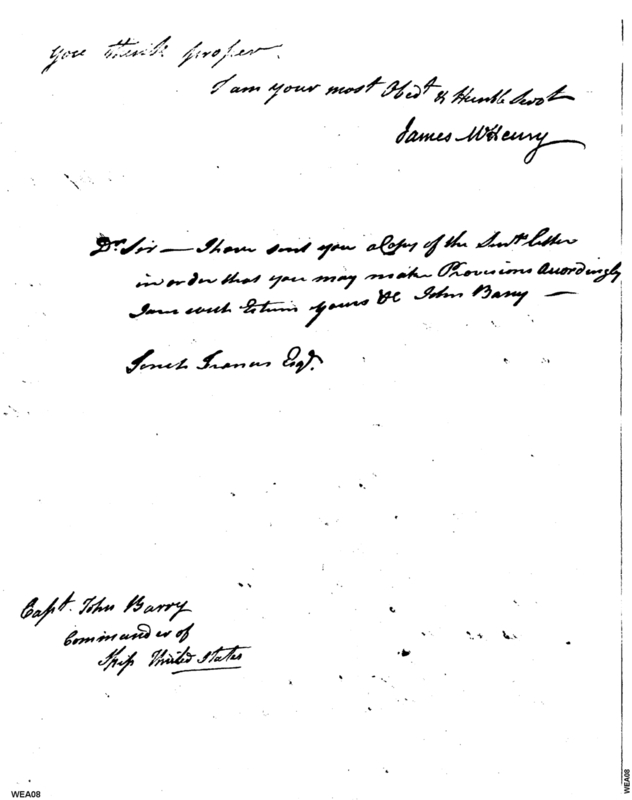 you think proper.
I am your most Obedt & Humble Servt
James McHenry
Dr Sir — I have sent you a Copy of the letter
in order that you may make Provisions Accordingly
I am with Esteem yours &c John Barry —
Francis Esqr.
Capt. John Barry
Commander of
Ship United States
WEA08
WEA08